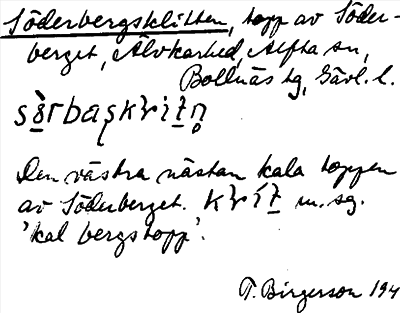 Söderbergsklitten, topp av Söder-
berget, Älvkarhed, Alfta sn,
Bollnäs tg, Gävl. l.
Den västra nästan kala toppen
av Söderberget. m. sg.
'kal bergstopp'.
T. Birgerson 194